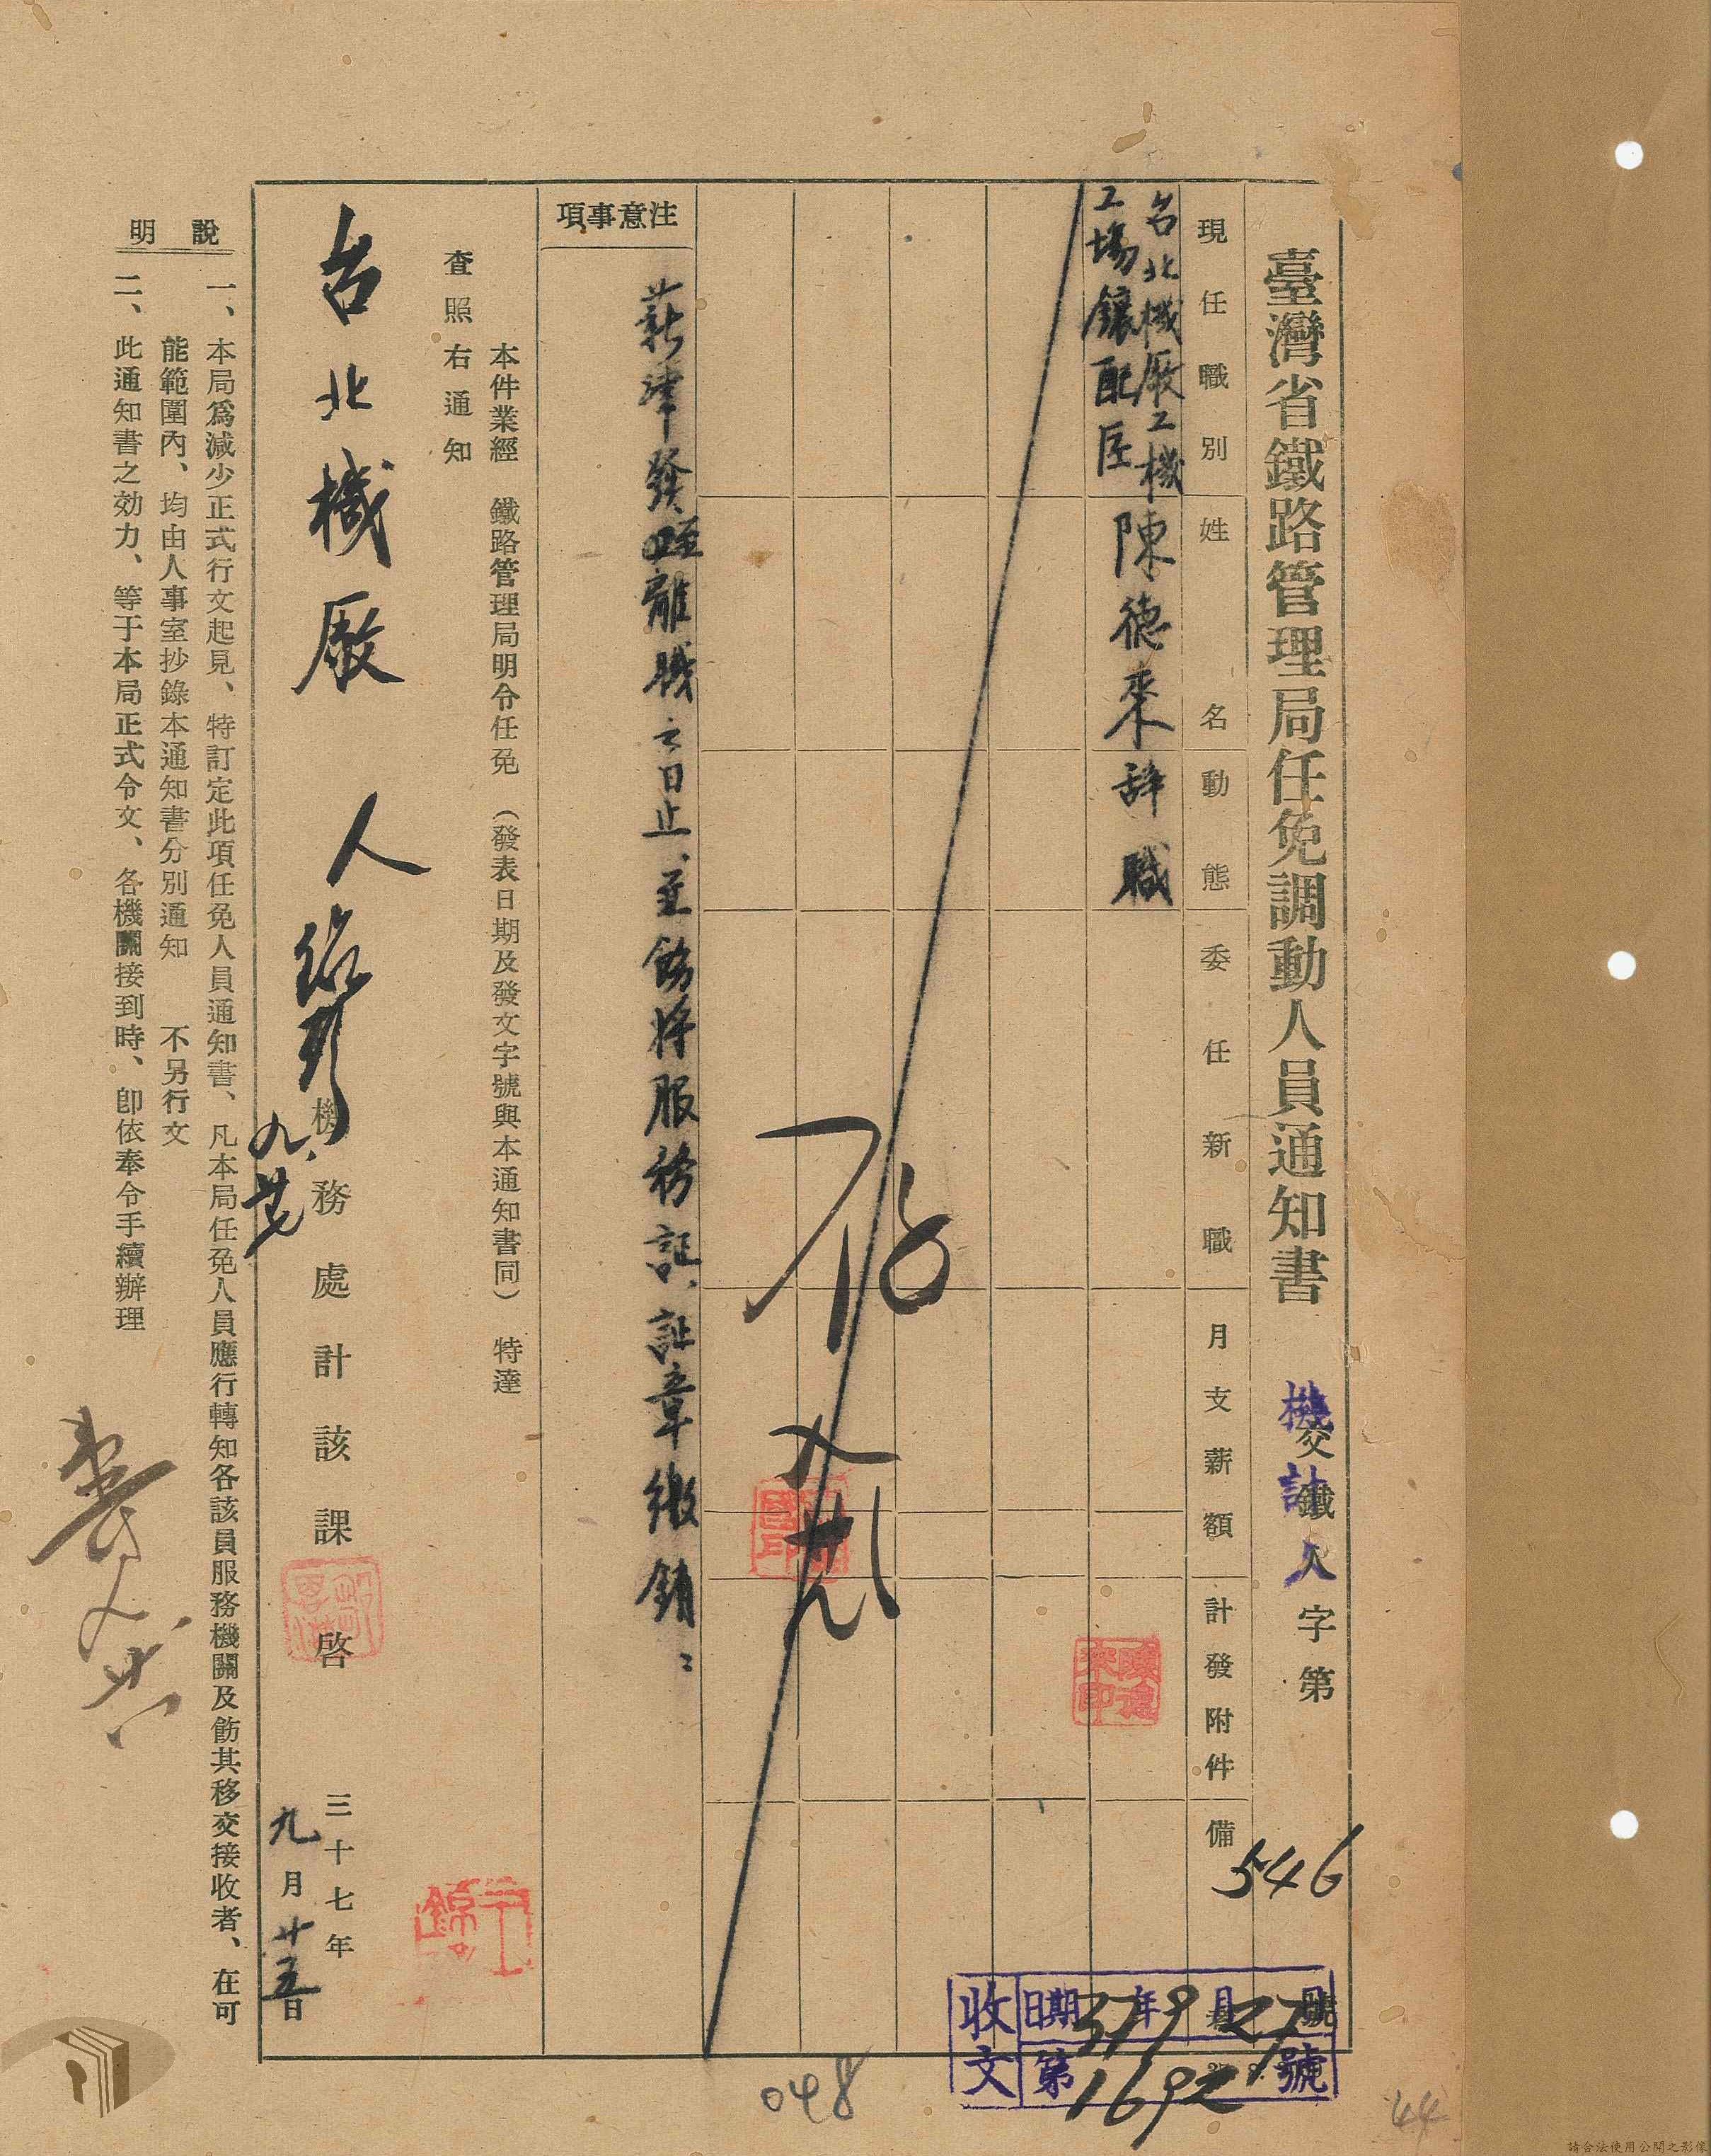 臺灣省鐵路管理局任免調動人員通知書
機計人字第546號
交鐵
現任職別
姓名
動態
委任新職
月支薪額
計發附件
備考
台北機廠工機
工場鑲配匠
陳德來
辞職
陳德來印
存
九廿九
注意事項
薪津發至離職之日止並飭將服務証、証章繳銷:
本件業經 鐵路管理局明令任免 (發表日期及發文字號與本通知書同) 特達
查照右通知
台北機廠
人
九、廿七
機務處計該課啓
三十七年
九月廿五日
說明
一、本局爲減少正式行文起見、特訂定此項任免人員通知書、凡本局任免人員應行轉知各該員服務機關及飭其移交接收者、在可
能範圍內、均由人事室抄錄本通知書分別通知 不另行文
二、此通知書之効力、等于本局正式令文、各機關接到時、卽依奉令手續辦理
收文
日期37年9月27日
第1692號
048
44
請合法使用公開之影像